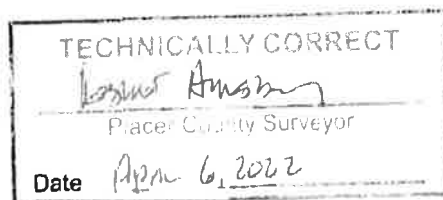 TECHNICALLY CORRECT
Placer County Surveyor
Date April 6, 2022